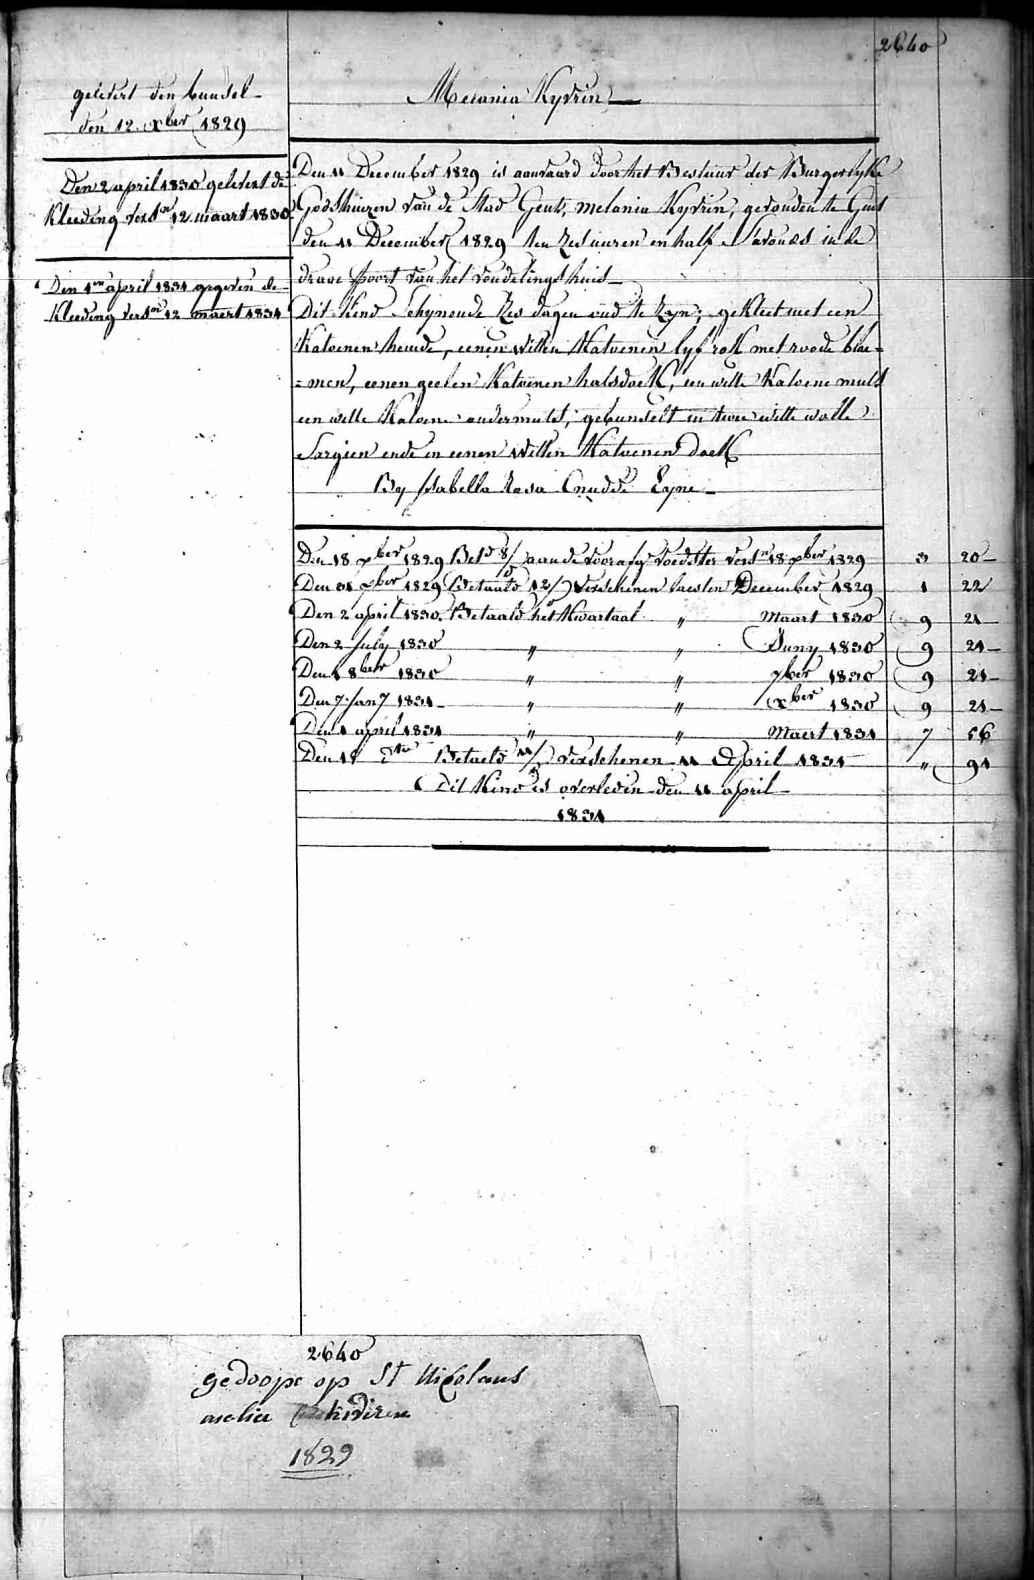 2640
gelevert den bundel
den 12 xber 1829
Melania Kydrin
Den 2 april 1830 gelevert de
Kleeding versn 12 maart 1830
Den 1en april 1831 gegeven de
Kleeding versn 12 maert 1831
Den 11 December 1829 is aanvaard door het Bestuur der Burgerlyke
Godshuizen van de Stad Gent, melania Kydrin, gevonden te Gent
den 11 December 1829 ten zes uren en half s'avonds in de
draae poort van het vondelingshuis
Dit Kind schynende zes dagen oud te zyn; gekleet met een
Katoenen hemde, eenen witten Katoenen lyfrok met roode bloe=
=men, eenen geelen Katoenen halsdoek, een witte Katoene muts
een witte Katoene ondermuts, gebundelt in twee witte wolle
Sargien ende in eenen witten Katoenen doek
By Isabella Rosa Cnudde Eyne
Den 18 xber 1829 Betd 8/d aan de voorafg voedster versn 18 xber 1829 3 20
Den 31 xber 1829 Betaald 12/d verschenen laesten December 1829 1 22
Den 2 april 1830 Betaald het Kwartaal " Maart 1830 9 21
Den 2 July 1830 " " Juny 1830 9 21
Den 1 8ber 1830 " " 7ber 1830 9 21
Den 7 Jany 1831 " " xber 1830 9 21
Den 1 april 1831 " " Maert 1831 7 56
Den 15 dito Betaeld 11/d verschenen 11 April 1831 " 91
Dit Kind is overleden den 11 april
1831
2640
gedoopt op St Nicolaus
1829